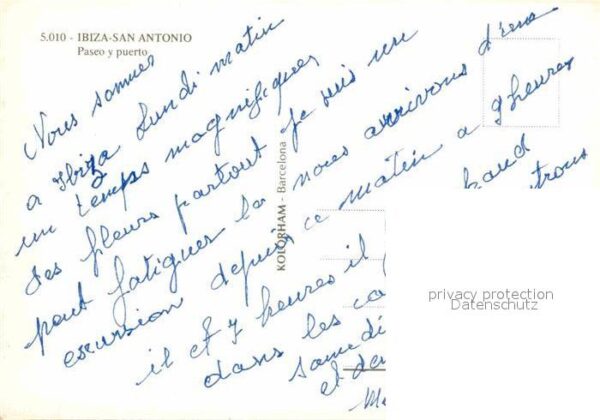 5.010 - IBIZA-SAN ANTONIO
Paseo y puerto
KOLORHAM - Barcelona
Nous sommes
a Ibiza Lundi matin
un temps magnifiques,
des fleurs partout je suis un
peut fatiguer la nous arrivons d'une
excursion depuis ce matin a 9 heures
il et 7 heures il haud
dans les ca itrons
samedi
et de
privacy protection
Datenschutz